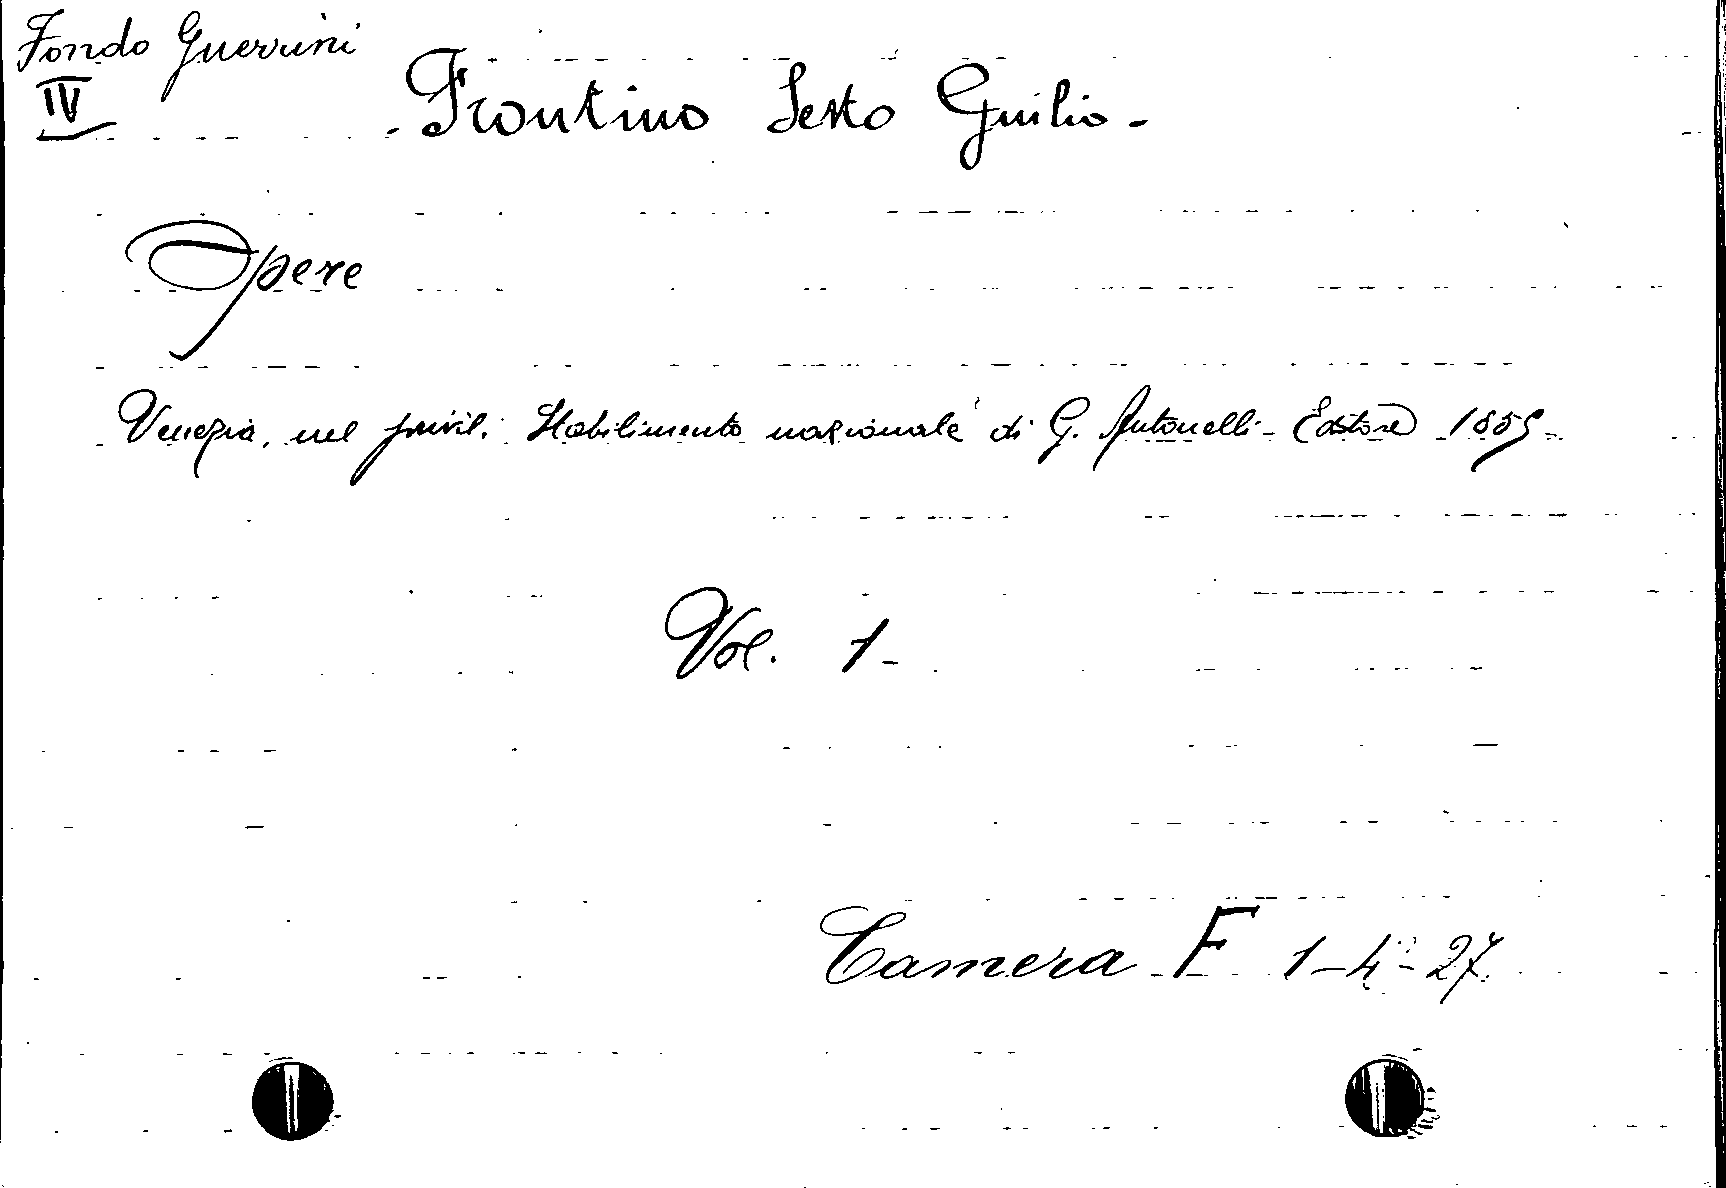 Fondo Guerrini
IV
Frontino Sesto Giulio -
Opere
Venezia, nel privil. Stabilimento nazionale di G. Antonelli - Editore 1859 -
Vol. 1 -
Camera F 1-4-27